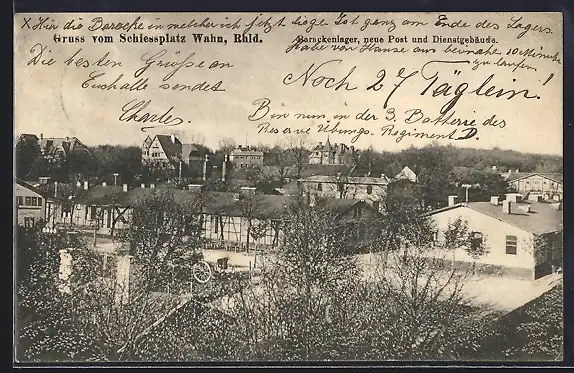 x Hier die Baracke in welcher ich jetzt liege. Ist ganz am Ende des Lagers.
Gruss vom Schiessplatz Wahn, Rhld.
Barackenlager, neue Post und Dienstgebäude.
Habe von Hause aus beinahe 10 Minuten
zu laufen.
Die besten Grüße an
Euch alle sendet
Charles.
Noch 27 Täglein!
Bin nun in der 3. Batterie des
Reserve Übungs. Regiment D.